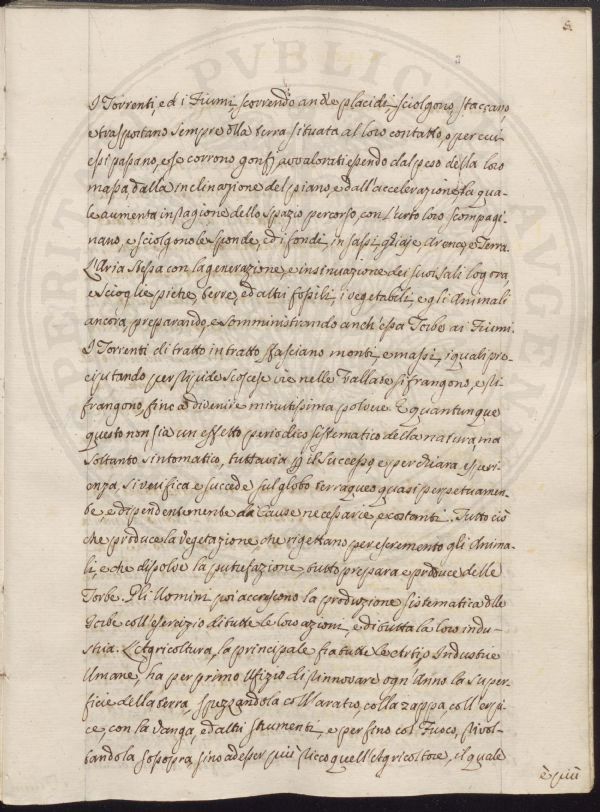 I Torrenti, ed i Fiumi scorrendo anche placidi sciolgono, staccano,
e trasportano sempre dlla terra situata al loro contatto, o per cui
essi passano, e se corrono gonfj, avvalorati essendo dal peso della loro
massa, dalla inclinazione del piano, e dall'accelerazione, la qua-
le aumenta in ragione dello spazio percorso, con l'urto loro scompagi-
nano, e sciolgono le sponde, ed i fondi, in sassi, ghiaje, Arene, e Terra.
L'Aria stessa con la generazione, e insinuazione dei suoi sali logora,
e scioglie pietre, terre, ed altri fossili, i vegetabili, e gli Animali
ancora, preparando, e somministrando anch'essa Torbe ai Fiumi.
I Torrenti di tratto in tratto sfasciano monti, e massi, i quali pre-
cipitando per ripide scoscese vie nelle Vallate si frangono, e ri-
frangono, fino a divenire minutissima polve. E quantunque
questo non sia un effetto periodico sistematico della natura, ma
soltanto sintomatico, tuttavia il successo, e per chiara esperi-
enza, si verifica e succede sul globo terraqueo quasi perpetuamen-
te, e dipendentemente da Cause necessarie, e costanti. Tutto ciò
che produce la vegetazione, che rigettano per escremento gli Anima-
li, e che dissolve la putrefazione, tutto prepara e produce delle
Torbe. Gli Uomini poi accrescono la produzione sistematica dlle
Torbe coll'esercizio di tutte le loro azioni, e di tutta la loro indu-
stria. L'Agricoltura, la principale fra tutte le Arti, o Industrie
Umane, ha per primo Ufizio di rinnovare ogn'Anno la super-
ficie della terra, spezzandola coll'aratro, colla zappa, coll'erpi-
ce, con la vanga, ed altri strumenti, e per fino col Fuoco, rivol-
tandola sossopra, sino ad esser più ricco quell'Agricoltore, il quale
è più